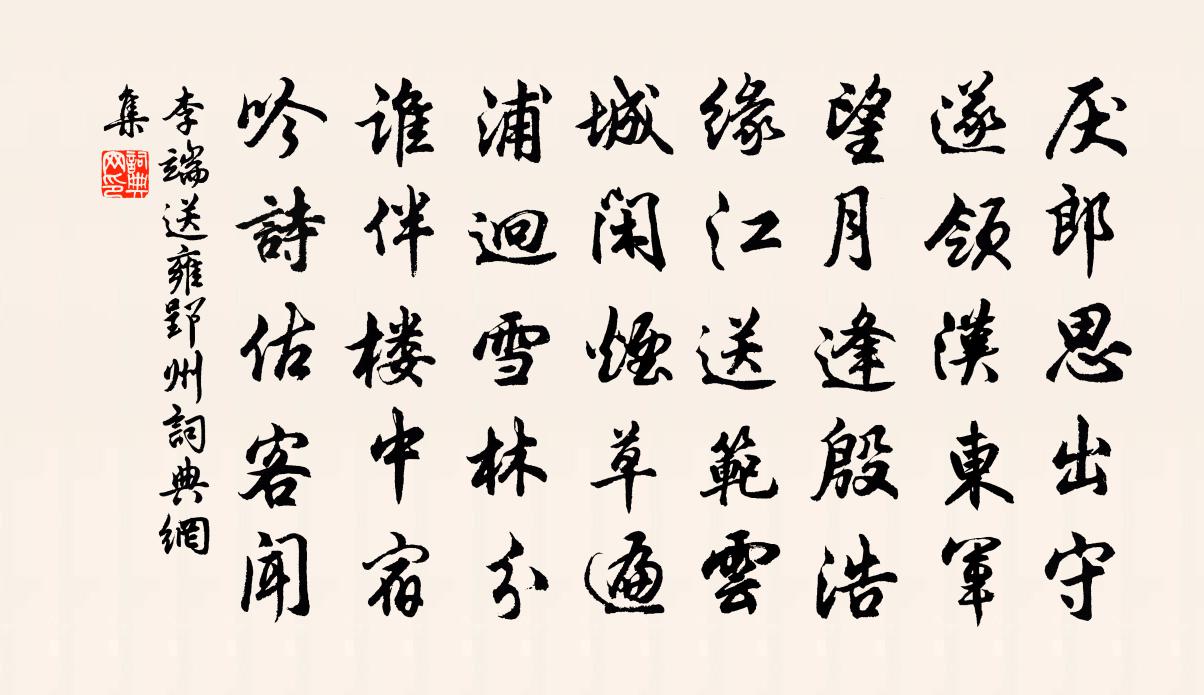 厌郎思出守
遂领漢東軍
望月逢殷浩
缘江送範雲
城闲煙草遍
浦迥雪林分
谁伴楼中宿
吟詩估客聞
李端送雍郢州詞典網
集
詞典网印